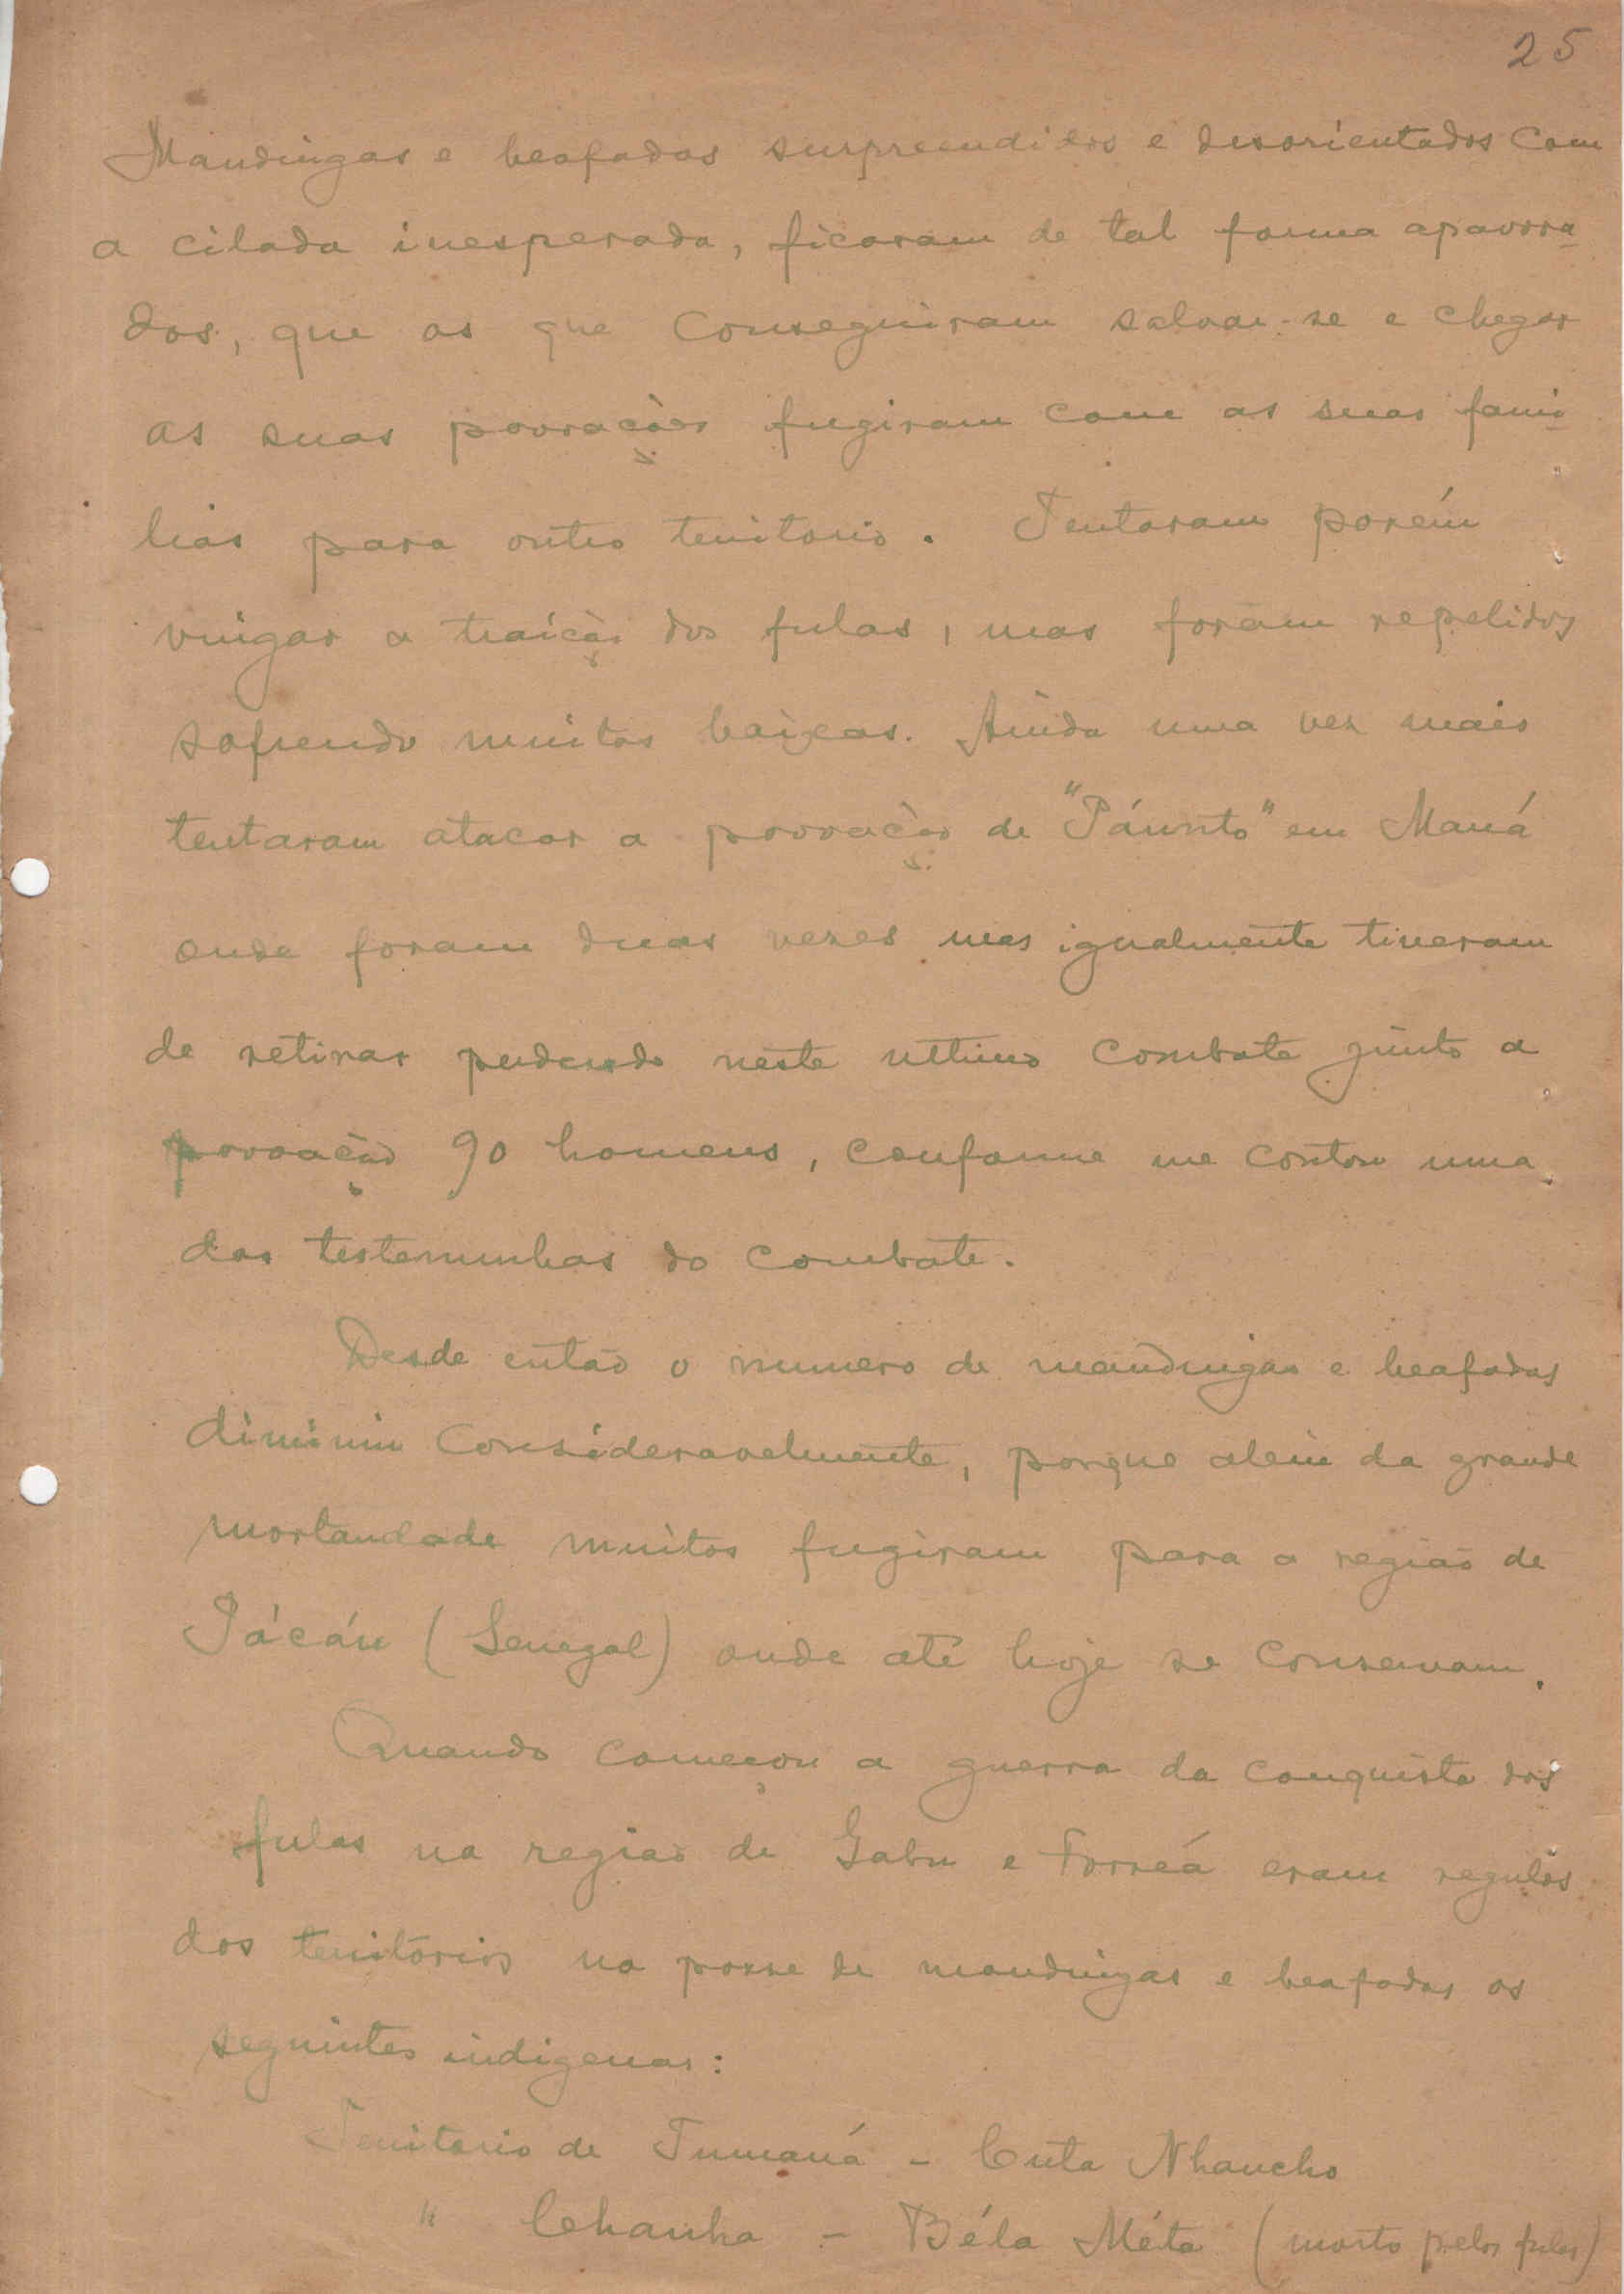 25
Mandingas e beafadas surpreendidos e desorientados com
a cilada inesperada, ficaram de tal forma apavora
dos, que os que conseguiram salvar-se e chegar
as suas povoações fugiram com as suas fami
lias para outro territorio. Tentaram porém
vingar a traição dos fulas, mas foram repelidos
sofrendo muitas baixas. Ainda uma vez mais
tentaram atacar a povoação de "Páunto" em Maná
onde foram duas vezes mas igualmente tiveram
de retirar perdendo neste ultimo combate junto a
povoação 90 homens, conforme me contou uma
das testemunhas do combate.
Desde então o numero de mandingas e beafadas
diminiu consideravelmente, porque além da grande
mortandade muitos fugiram para a região de
Pácáu (Senegal) onde até hoje se conservam.
Quando começou a guerra da conquista dos
fulas na região de Gabu e Forreá eram regulos
dos territórios na posse de mandingas e beafadas os
seguintes indigenas:
Territorio de Tumaná - Cuta Nhancho
" Chanha - Béla Méta (morto pelos fulas)